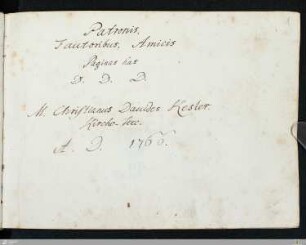 Patronis,
Fautoribus, Amicis
Paginas has
D. D. D.
M. Christianus David Kesler
A. D. 1766.